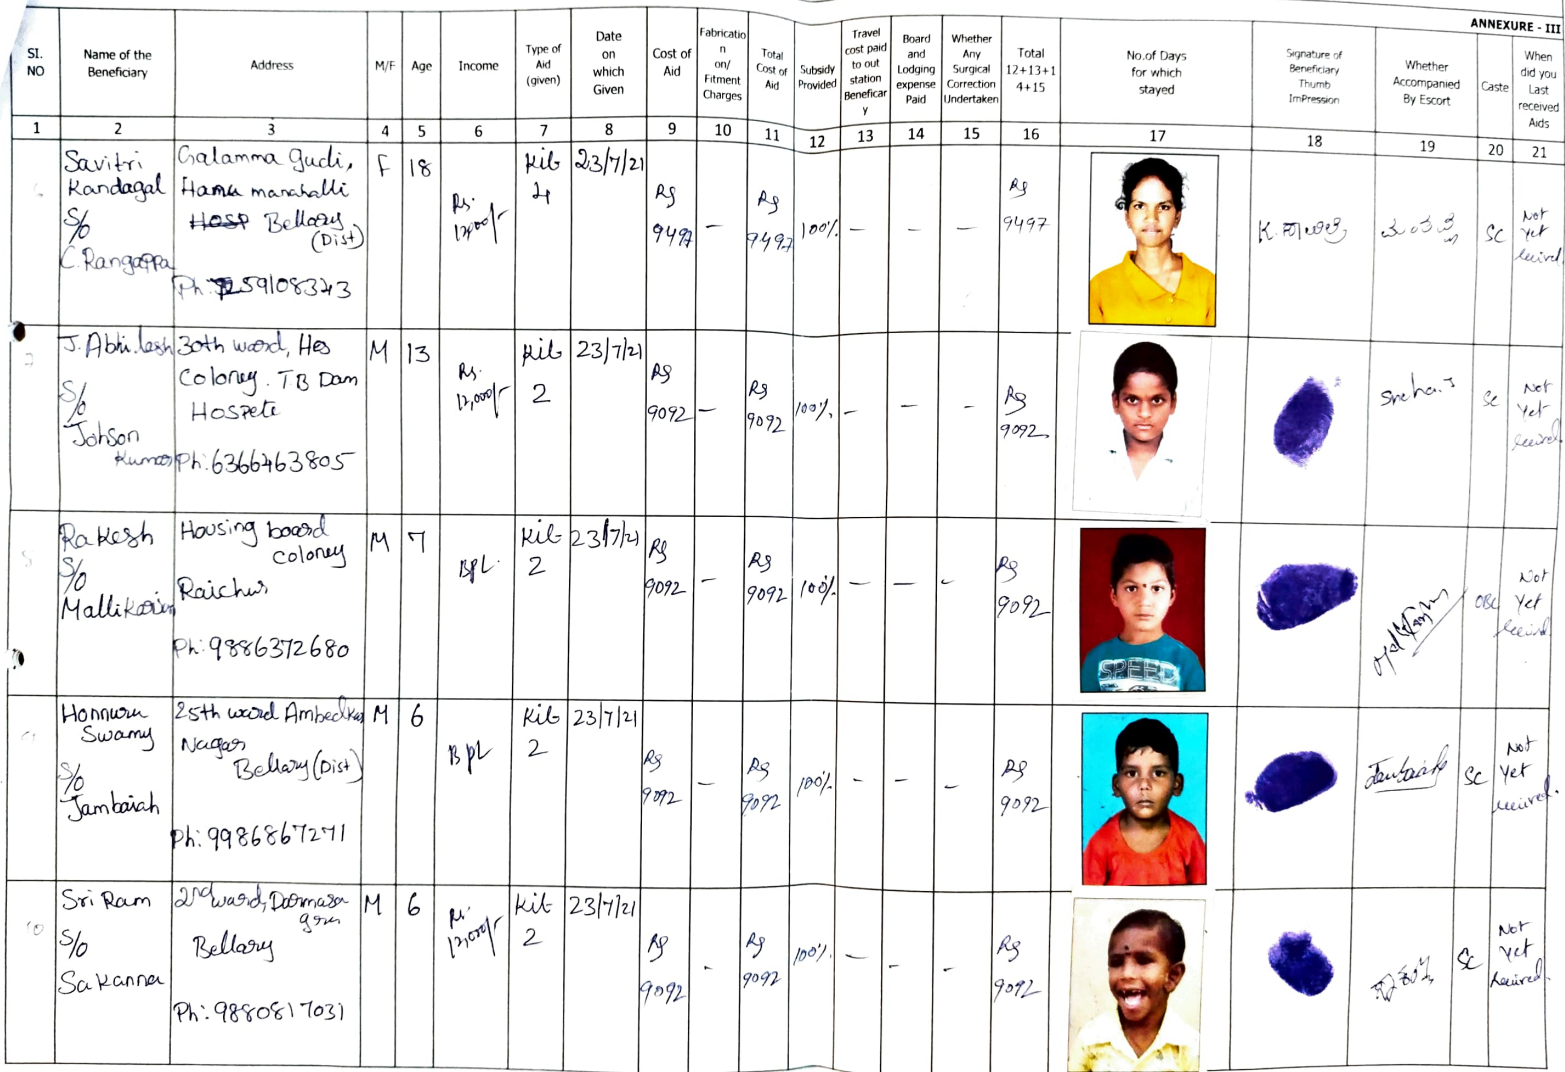 ANNEXURE - III
SI. NO
Name of the Beneficiary
Address
M/F
Age
Income
Type of Aid (given)
Date on which Given
Cost of Aid
Fabricatio n on/ Fitment Charges
Total Cost of Aid
Subsidy Provided
Travel cost paid to out station Beneficar y
Board and Lodging expense Paid
Whether Any Surgical Correction Undertaken
Total 12+13+1 4+15
No.of Days for which stayed
Signature of Beneficiary Thumb ImPression
Whether Accompanied By Escort
Caste
When did you Last received Aids
1 2 3 4 5 6 7 8 9 10 11 12 13 14 15 16 17 18 19 20 21
Savitri
Kandagal
S/o
C. Rangappa
Galamma Gudi,
Bellary
(Dist)
F
18
Rs.
12,000/-
Kit
4
23/7/21
Rs
9497
–
Rs
9497
100%
– – –
Rs
9497
SC
Not
Yet
J. Abhilesh
S/o
Johson
Kumar
30th word, Hes
Coloney. T.B Dam
Hospete
Ph: 6366463805
M
13
Rs.
12,000/-
Kit
2
23/7/21
Rs
9092
–
Rs
9092
100%
– – –
Rs
9092
Sneha. J
SC
Not
Yet
Rakesh
S/o
Mallikarjun
Housing board
Coloney
Raichur
Ph: 9886372680
M
7
BPL
Kit
2
23/7/21
Rs
9092
–
Rs
9092
100%
– – –
Rs
9092
SPEED
OBC
Not
Yet
Honnuru
Swamy
S/o
Jambaiah
25th word Ambedkar
Nagar
Bellary (Dist)
Ph: 9986867271
M
6
BPL
Kit
2
23/7/21
Rs
9092
–
Rs
9092
100%
– – –
Rs
9092
Jambaiah
SC
Not
Yet
received.
Sri Ram
S/o
Sakanna
2nd word,
Bellary
Ph: 9880817031
M
6
Rs.
12,000/-
Kit
2
23/7/21
Rs
9092
-
Rs
9092
100%
– – –
Rs
9092
SC
Not
Yet
Received.